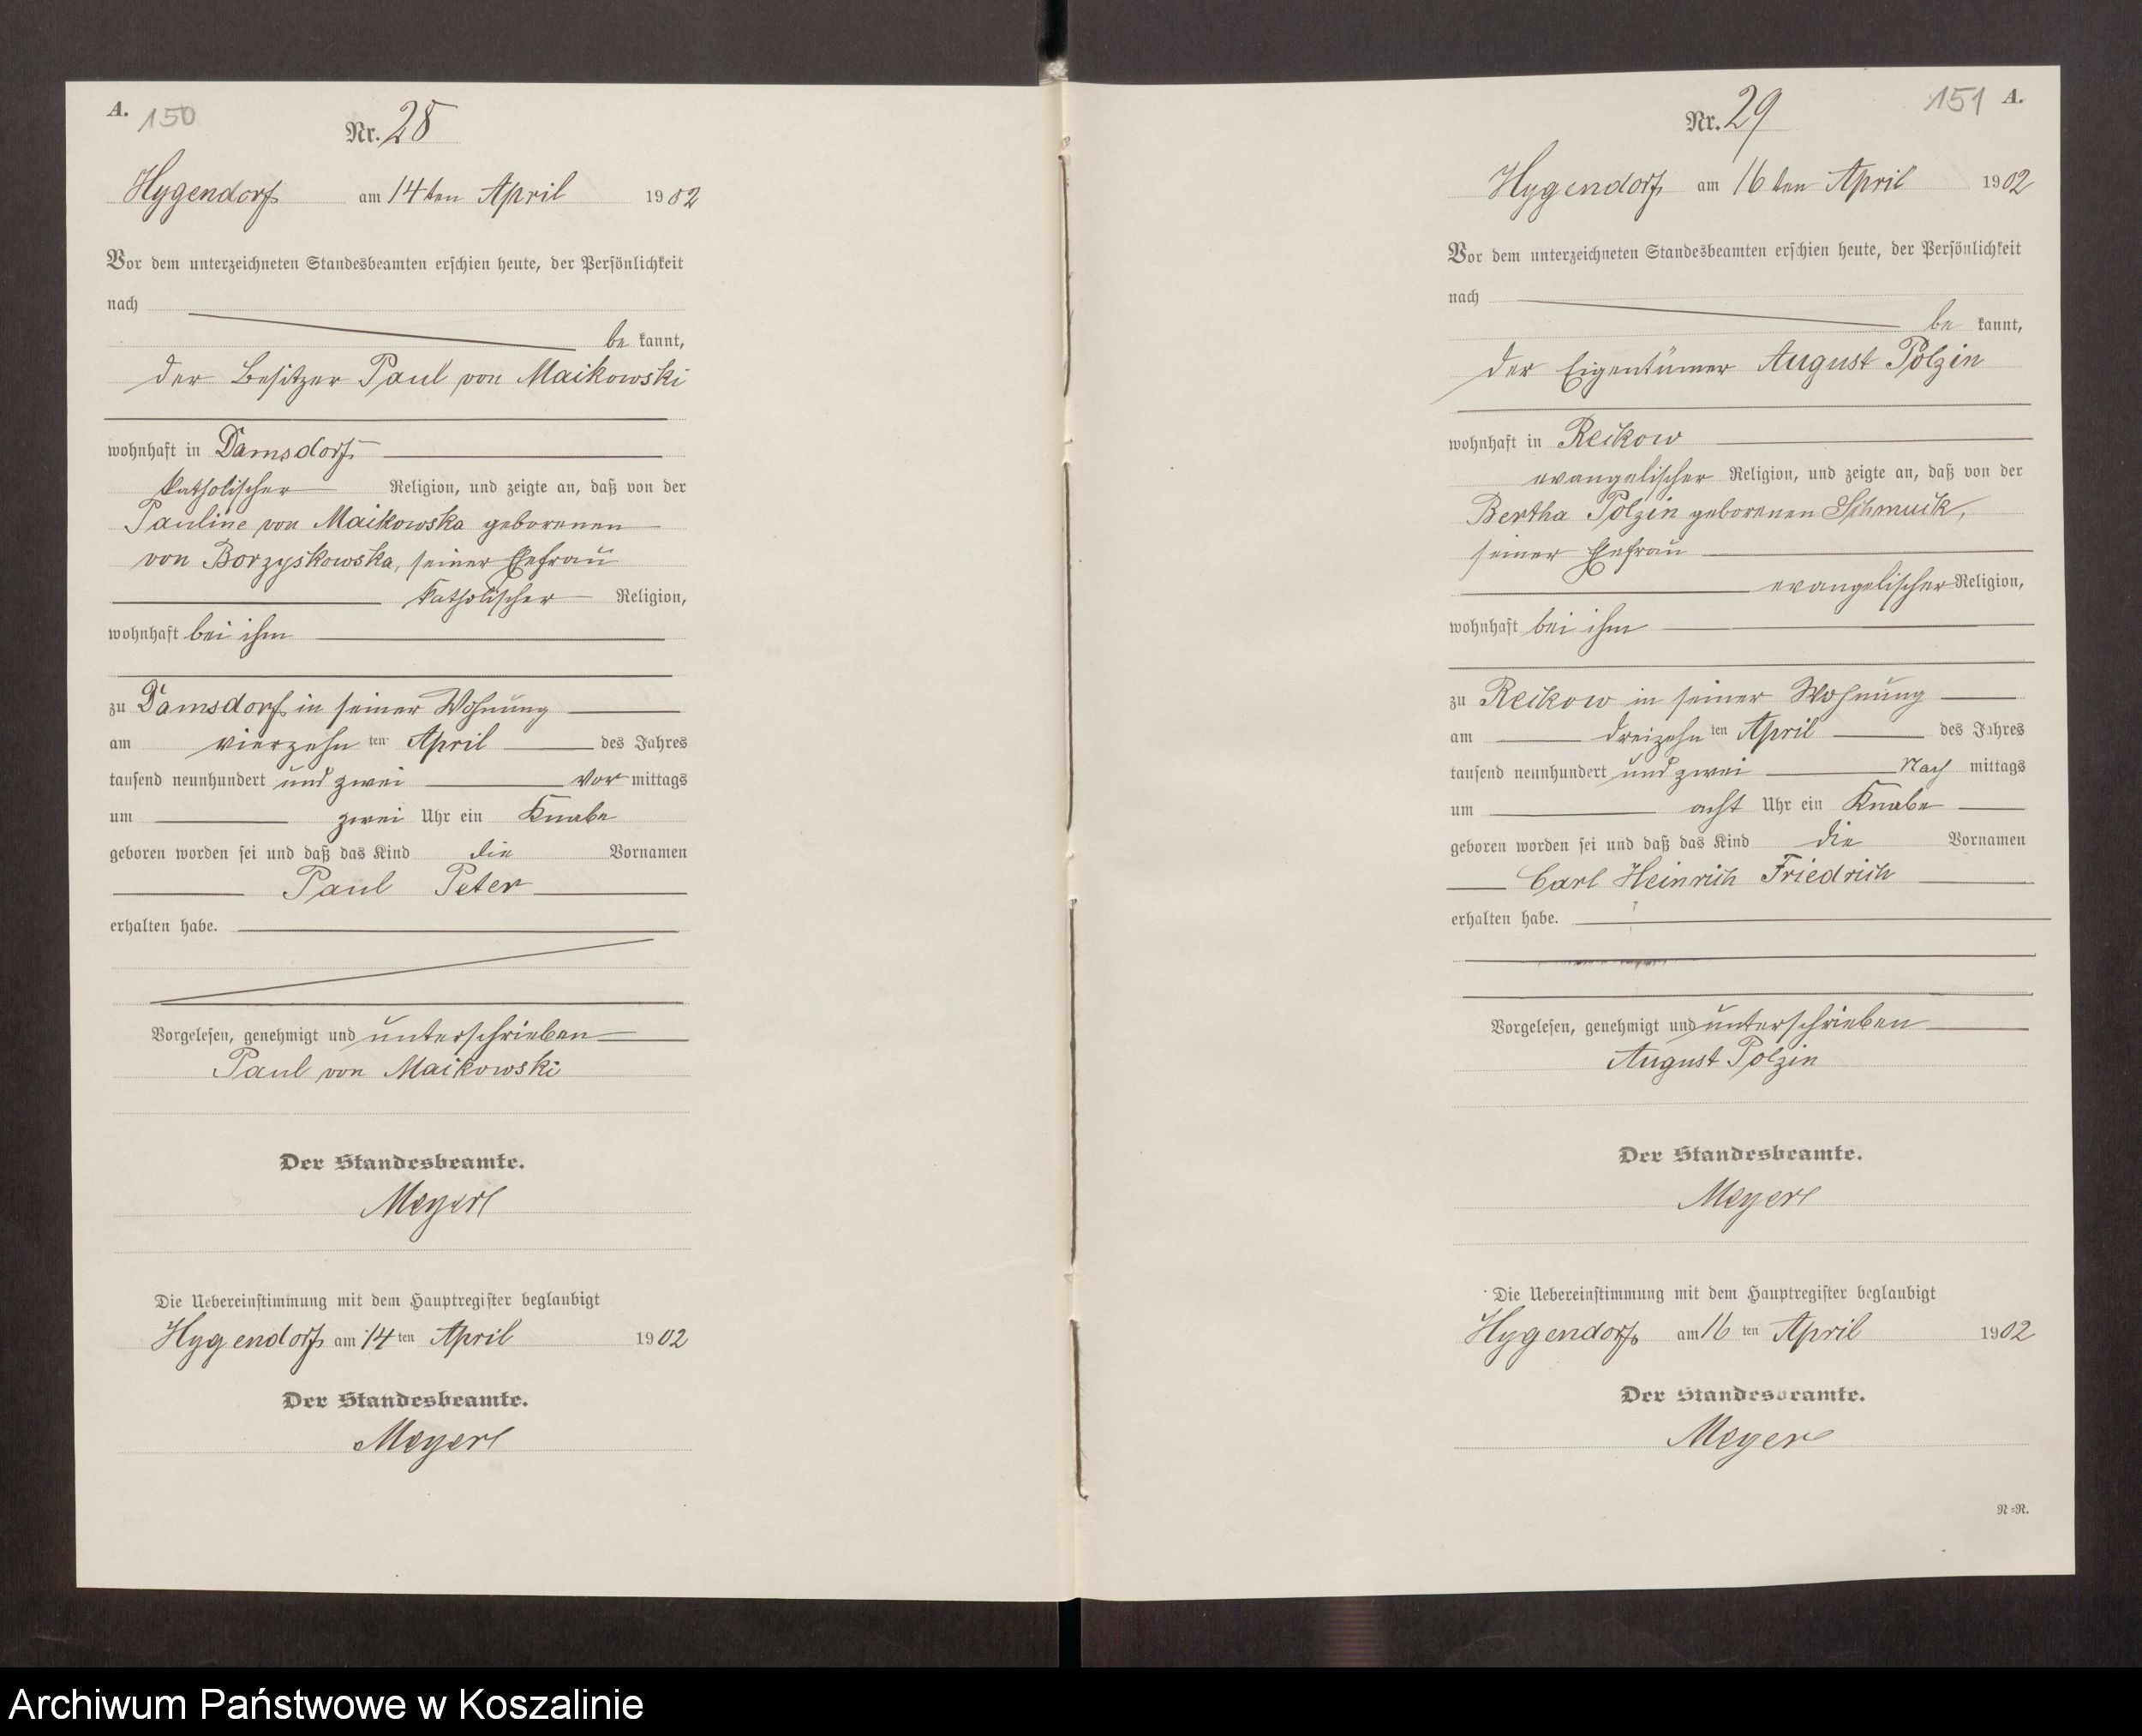 A. 150
Nr. 28
Hygendorf am 14ten April 1902
Vor dem unterzeichneten Standesbeamten erschien heute, der Persönlichkeit
nach
be kannt,
der Besitzer Paul von Maikowski
wohnhaft in Damsdorf
katholischer Religion, und zeigte an, daß von der
Pauline von Maikowska geborenen
von Borzyskowska, seiner Ehefrau
katholischer Religion,
wohnhaft bei ihm
zu Damsdorf in seiner Wohnung
am vierzehn ten April des Jahres
tausend neunhundert und zwei Vor mittags
um zwei Uhr ein Knabe
geboren worden sei und daß das Kind die Vornamen
Paul Peter
erhalten habe.
Vorgelesen, genehmigt und unterschrieben
Paul von Maikowski
Der Standesbeamte.
Meyer
Die Uebereinstimmung mit dem Hauptregister beglaubigt
Hygendorf am 14 ten April 1902
Der Standesbeamte.
Meyer
151 A.
Nr. 29
Hygendorf am 16ten April 1902
Vor dem unterzeichneten Standesbeamten erschien heute, der Persönlichkeit
nach
be kannt,
der Eigentümer August Polzin
wohnhaft in Reckow
evangelischer Religion, und zeigte an, daß von der
Bertha Polzin geborenen Schmuck,
seiner Ehefrau
evangelischer Religion,
wohnhaft bei ihm
zu Reckow in seiner Wohnung
am dreizehn ten April des Jahres
tausend neunhundert und zwei Nach mittags
um acht Uhr ein Knabe
geboren worden sei und daß das Kind die Vornamen
Carl Heinrich Friedrich
erhalten habe.
Vorgelesen, genehmigt und unterschrieben
August Polzin
Der Standesbeamte.
Meyer
Die Uebereinstimmung mit dem Hauptregister beglaubigt
Hygendorf am 16 ten April 1902
Der Standesbeamte.
Meyer
N=R.
Archiwum Państwowe w Koszalinie